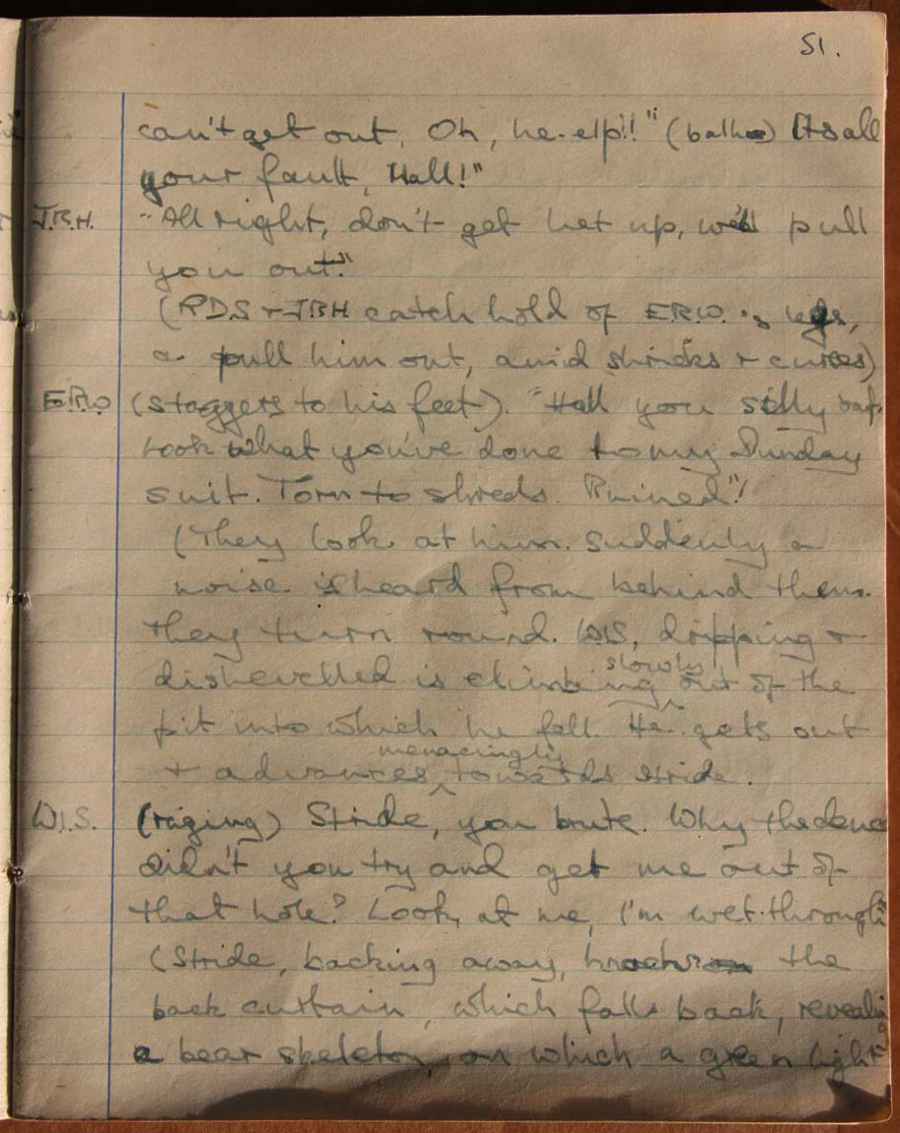 51.
can't get out. Oh, he-elp!!" (bathos) Its all
your fault, Hall!"
J.B.H. "All right, don't get het up, we'll pull
you out."
(RDS + JBH catch hold of E.R.W.'s legs,
a pull him out, amid shrieks + curses)
E.R.W. (staggers to his feet). "Hall you silly
Look what you've done to my Sunday
suit. Torn to shreds. Ruined"!
(They look at him. Suddenly a
noise is heard from behind them.
They turn round. WIS, dripping +
dishevelled is climbing slowly out of the
pit into which he fell. He gets out
+ advances menacingly towards Stride.
W.I.S. (raging) Stride, you brute. Why the deuce
didn't you try and get me out of
that hole? Look at me, I'm wet through
(Stride, backing away, the
back curtain, which falls back, revealing
a bear skeleton, on which a green light